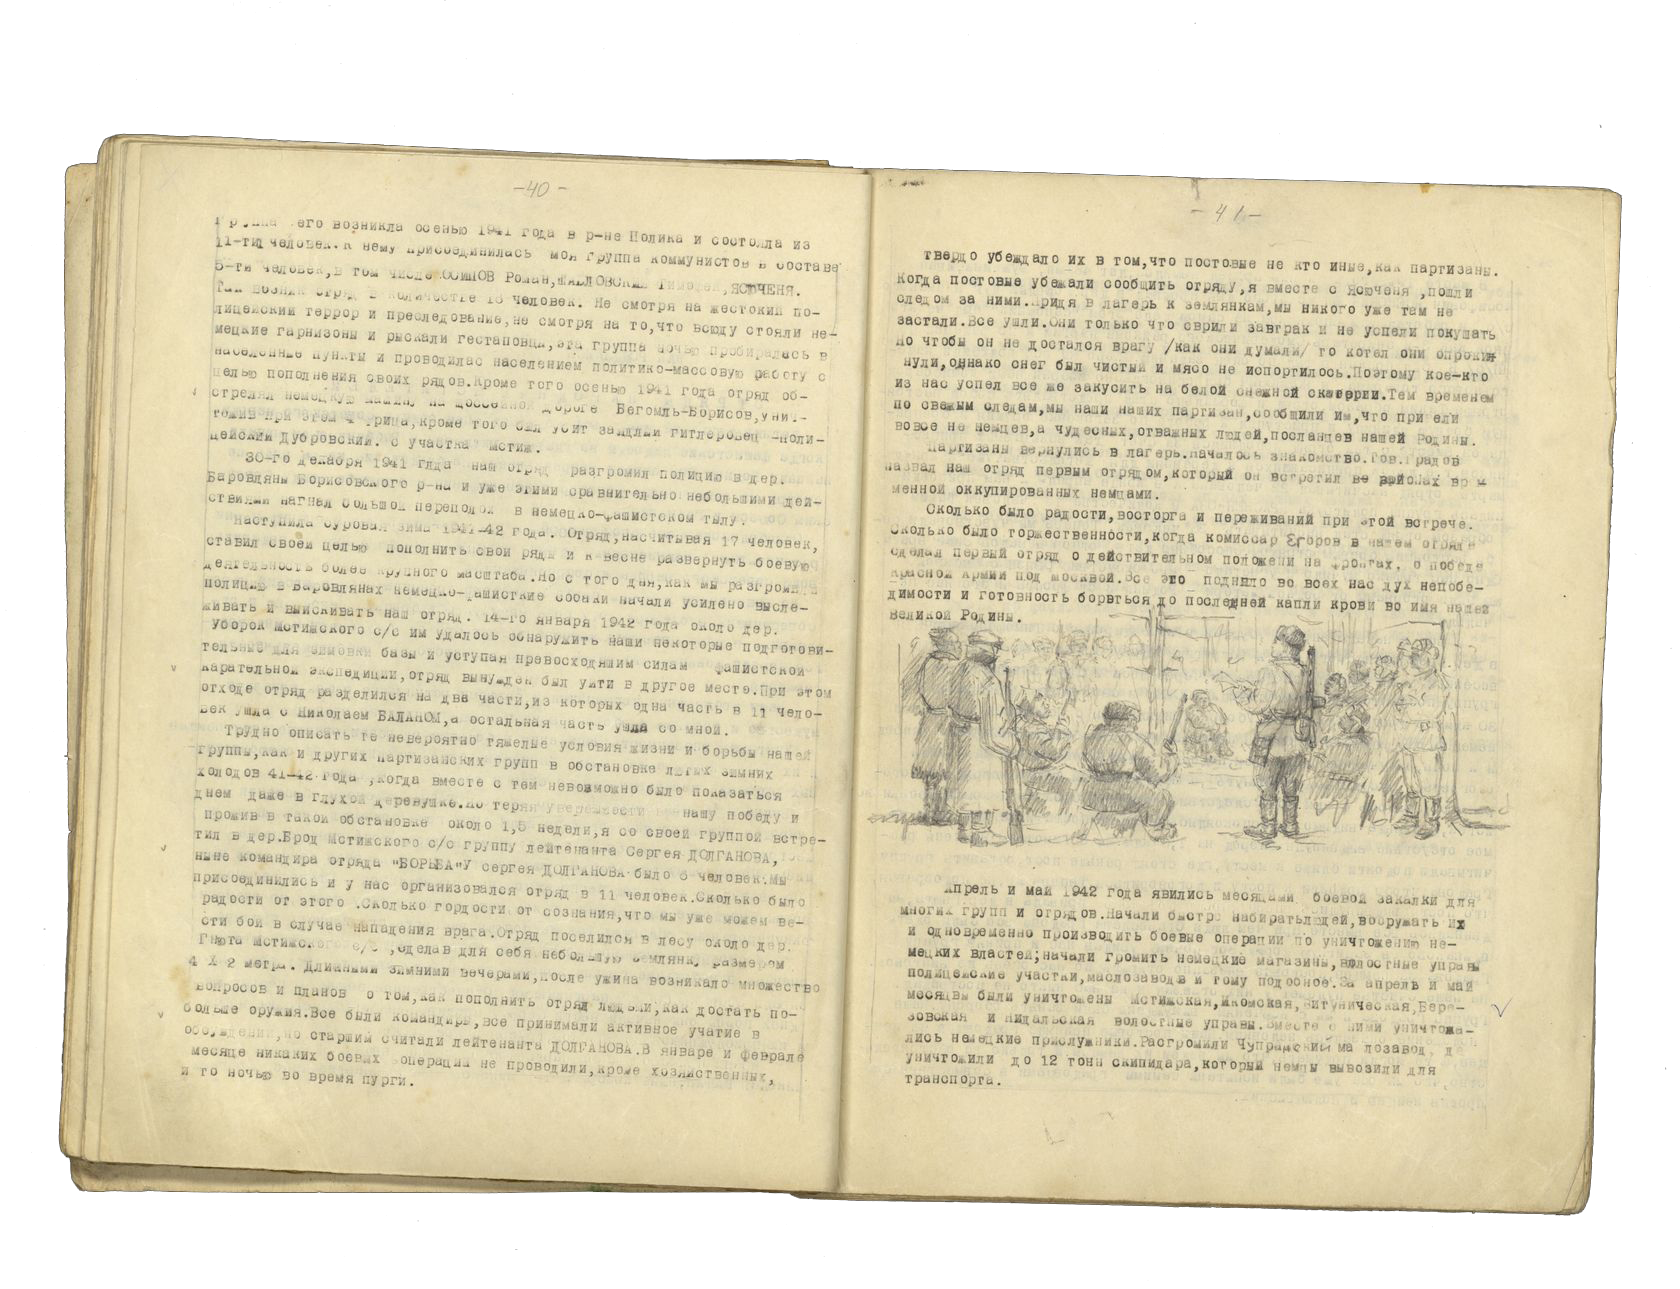 -40-
его возникла осенью 1941 года в р-не Полика и состояла из
11-ти человек. К нему присоединилась моя группа коммунистов в составе
5-ти человек,в том числе ОСИПОВ Роман, ЯСЮЧЕНЯ.
Так возник отряд в количестве 16 человек. Не смотря на жестокий по-
лицейский террор и преследование,не смотря на то,что всюду стояли не-
мецкие гарнизоны и рыскали гестаповцы,эта группа ночью пробиралась в
населенные пункты и проводилас населением политико-массовую работу с
целью пополнения своих рядов.Кроме того осенью 1941 года отряд об-
стрелял немецкую машину на шоссейной дороге Бегомль-Борисов,унич-
тожив при этом 4 фрица,кроме того был убит заядлый гитлеровец -поли-
цейский Дубровский. с участка Мстиж.
30-го декабря 1941 глда наш отряд разгромил полицию в дер.
Баровляны Борисовского р-на и уже этими сравнительно небольшими дей-
ствиями нагнал большой переполох в немецко-фашистском тылу.
Наступила суровая зима 1941-42 года. Отряд,насчитывая 17 человек,
ставил своей целью пополнить свои ряды и к весне развернуть боевую
деятельность более крупного масштаба.Но с того дня,как мы разгромили
полицию в Баровлянах немецко-фашисткие собаки начали усилено высле-
живать и выискивать наш отряд. 14-го января 1942 года около дер.
Уборок Мстижского с/с им удалось обнаружить наши некоторые подготови-
тельные для зимовки базы и уступая превосходящим силам фашистской
карательной экспедиции,отряд вынужден был уйти в другое место.При этом
отходе отряд разделился на два части,из которых одна часть в 11 чело-
век ушла с Николаем БАЛАНОМ,а остальная часть ушла со мной.
Трудно описать те невероятно тяжелые условия жизни и борьбы нашей
группы,как и других партизанских групп в обстановке лютых зимних
холодов 41-42 года ,когда вместе с тем невозможно было показаться
днем даже в глухой деревушке.Не теряя уверенности нашу победу и
прожив в такой обстановке около 1,5 недели,я со своей группой встре-
тил в дер.Брод Мстижского с/с группу лейтенанта Сергея ДОЛГАНОВА,
ныне командира отряда "БОРЬБА"У сергея ДОЛГАНОВА было 6 человек.Мы
присоединились и у нас организовался отряд в 11 человек.Сколько было
радости от этого .Сколько гордости от сознания,что мы уже можем ве-
сти бой в случае нападения врага.Отряд поселился в лесу около дер.
Гнюта Мстижского с/с ,сделав для себя небольшую землянку размером
4 Х 2 метра. Длинными зимними вечерами,после ужина возникало множество
вопросов и планов о том,как пополнить отряд людьми,как достать по-
больше оружия.Все были командиры,все принимали активное учатие в
обсуждении,но старшим считали лейтенанта ДОЛГАНОВА.В январе и феврале
месяце никаких боевых операций не проводили,кроме хозяйственных,
и то ночью во время пурги.
-41-
твердо убеждало их в том,что постовые не кто иные,как партизаны.
Когда постовые убежали сообщить отряду,я вместе с Ясюченя ,пошли
следом за ними.Придя в лагерь к землянкам,мы никого уже там не
застали.Все ушли.Они только что сврили завтрак и не успели покушать
Но чтобы он не достался врагу /как они думали/ то котел они опроки
нули,однако снег был чистый и мясо не испортилось.Поэтому кое-кто
из нас успел все же закусить на белой снежной скатерти.Тем временем
по свежым следам,мы наши наших партизан,сообщили им,что при ели
вовсе не немцев,а чудесных,отважных людей,посланцев нашей Родины.
Партизаны вернулись в лагерь.Началось знакомство.Тов.Градов
назвал наш отряд первым отрядом,который он встретил ве районах вр м
менной оккупированных немцами.
Сколько было радости,восторга и переживаний при этой встрече.
Сколько было торжественности,когда комиссар Егоров в нашем отряде
сделал первый отряд о действительном положени на фронтах, о победе
Красной Армии под Москвой.Все это подняло во всех нас дух непобе-
димости и готовность борвться до последней капли крови во имя нашей
великой Родины.
Апрель и май 1942 года явились месяцами боевой закалки для
многих групп и отрядов.Начали быстро набиратьлюдей,вооружать их
и одновременно производить боевые операции по уничтожению не-
мецких властей;начали громить немецкие магазины,волостные управы
полицейские участки,маслозаводы и тому подобное.За апрель и май
месяцвы были уничтожены Мстижская,Икомская,Витуническая,Бере-
зовская и Нидальская волостные управы.Вместе с ними уничтожа-
лись немецкие прислужники.Разгромили Чупрынский ма лозавод, где
уничтожили до 12 тонн скипидара,который немцы вывозили для
транспорта.